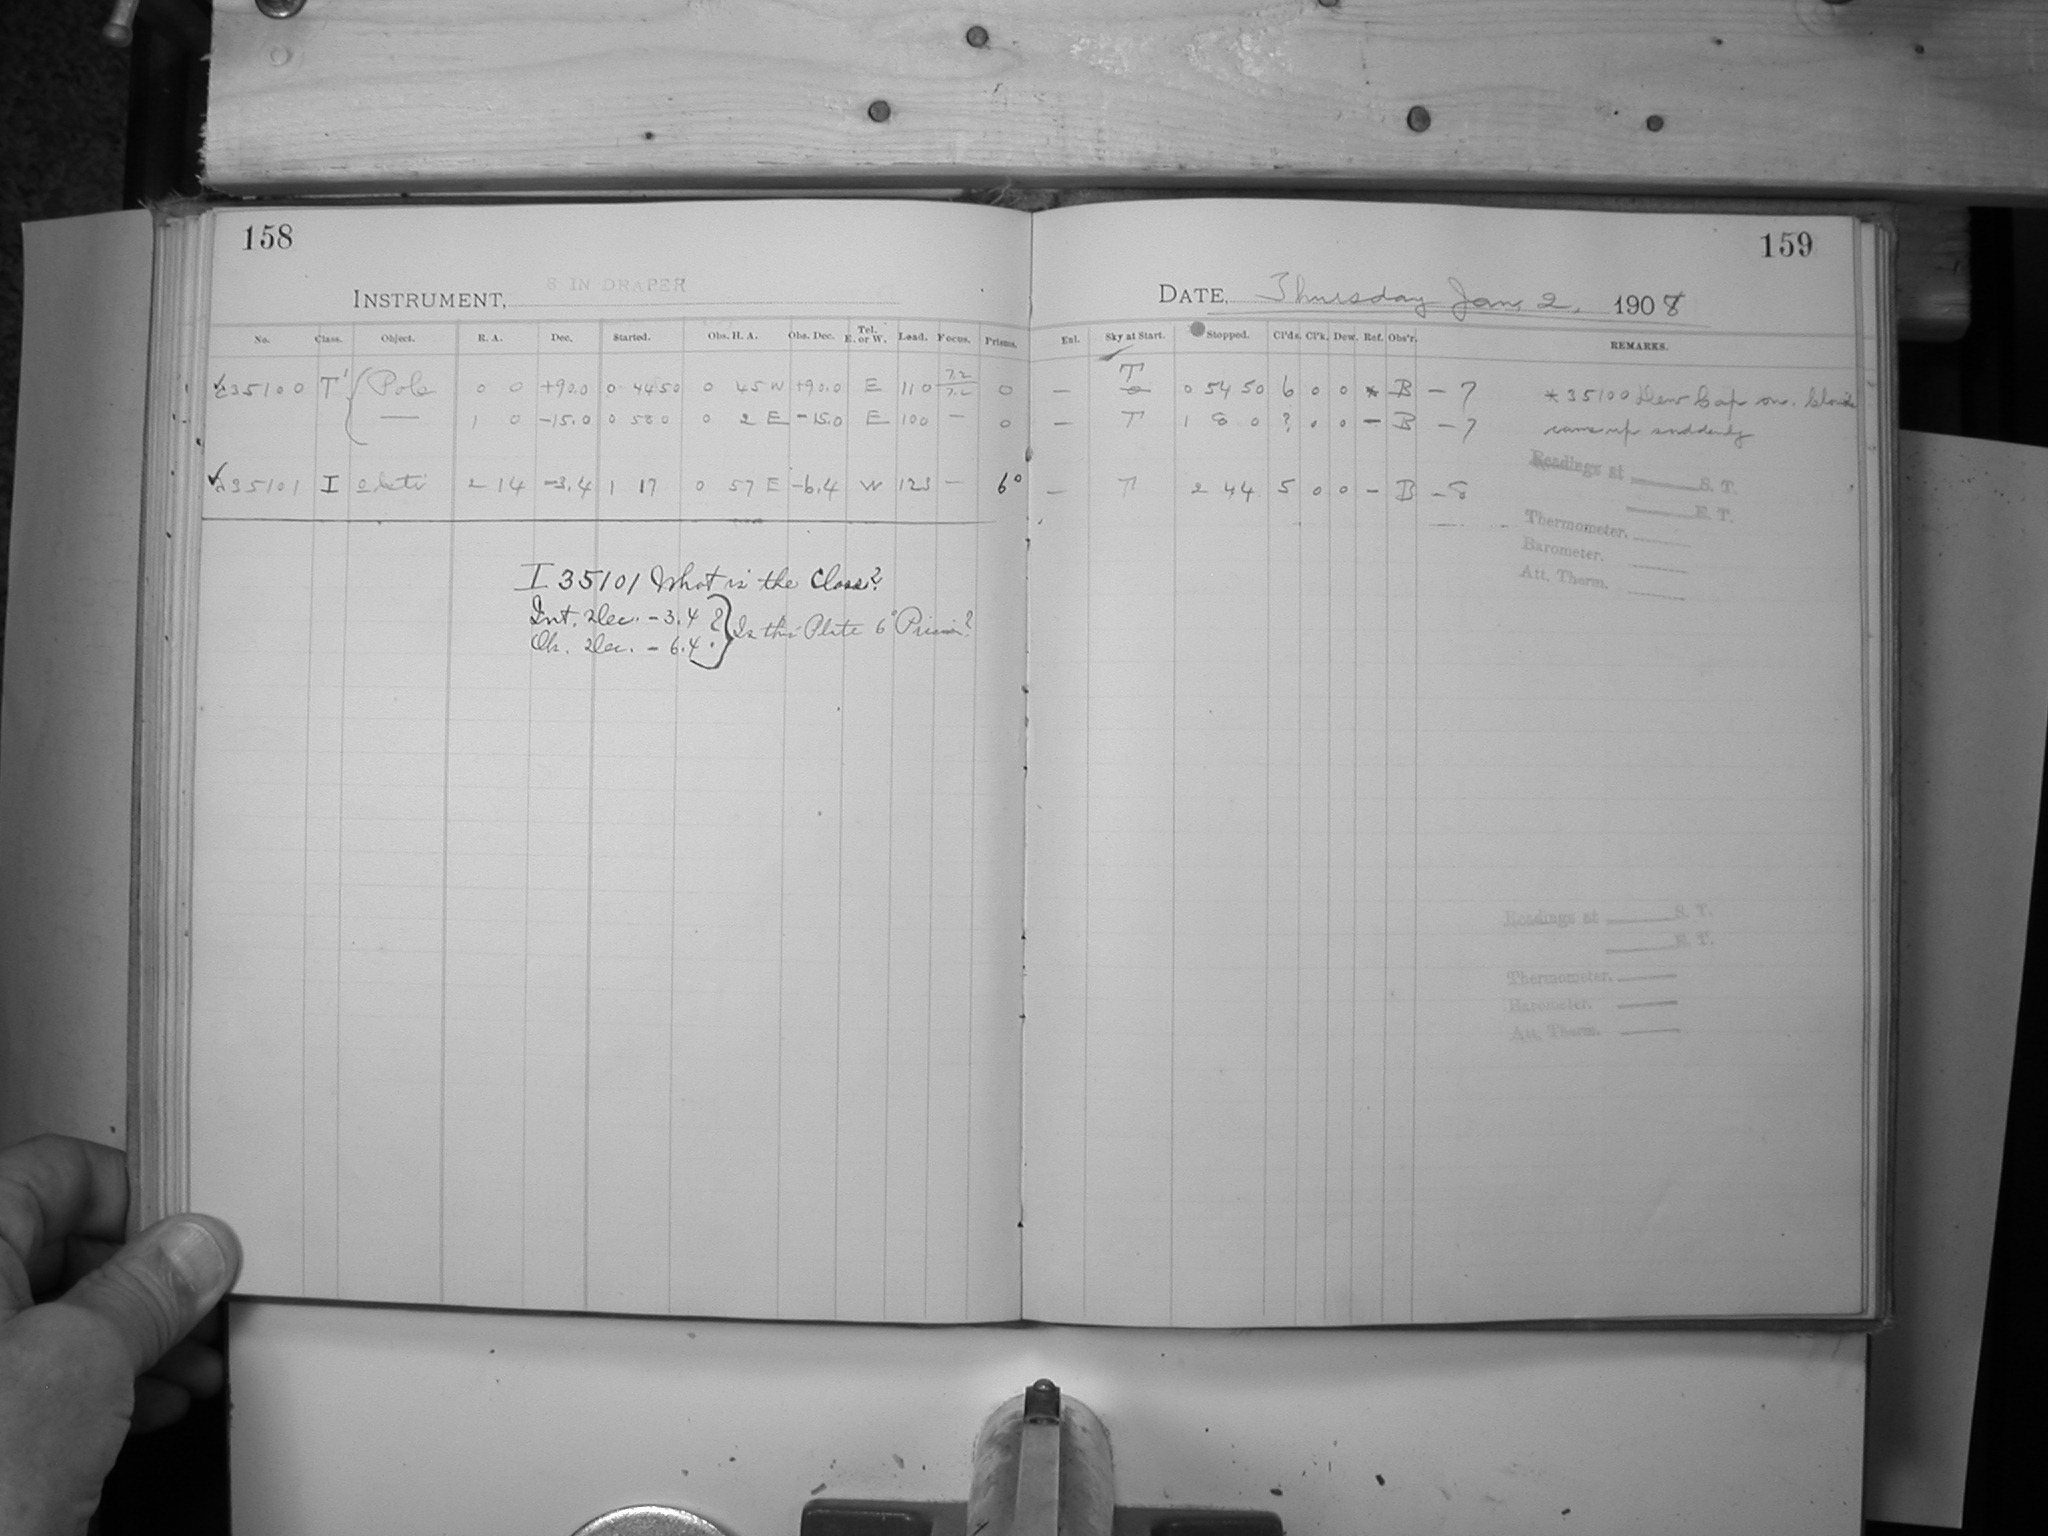 158
159
INSTRUMENT, 8 IN DRAPER
DATE, Thursday Jan. 2, 1908
No. Class. Object. R. A. Dec. Started. Obs. H. A. Obs. Dec. Tel. E. or W. Load. Focus. Prisms. Enl. Sky at Start. Stopped. Cl'ds. Cl'k. Dew. Ref. Obs'r. REMARKS.
35100 T' Pole 0 0 +90.0 0 44 50 0 45 W +90.0 E 110 7.2 7.2 0 — T 0 54 50 6 0 0 * B - 7 * 35100 Dew Cap on. Clouds
— 1 0 -15.0 0 58 0 0 2 E -15.0 E 100 — 0 — T 1 8 0 ? 0 0 - B - 7 came up suddenly
35101 I o Ceti 2 14 -3.4 1 17 0 57 E -6.4 W 123 — 6° — T 2 44 5 0 0 - B - 8
Readings at S. T.
E. T.
Thermometer.
Barometer.
Att. Therm.
I 35101 What is the Class?
Int. Dec. - 3.4 ? Is this Plate 6° Prism?
Ob. Dec. - 6.4
Readings at S. T.
E. T.
Thermometer.
Barometer.
Att. Therm.